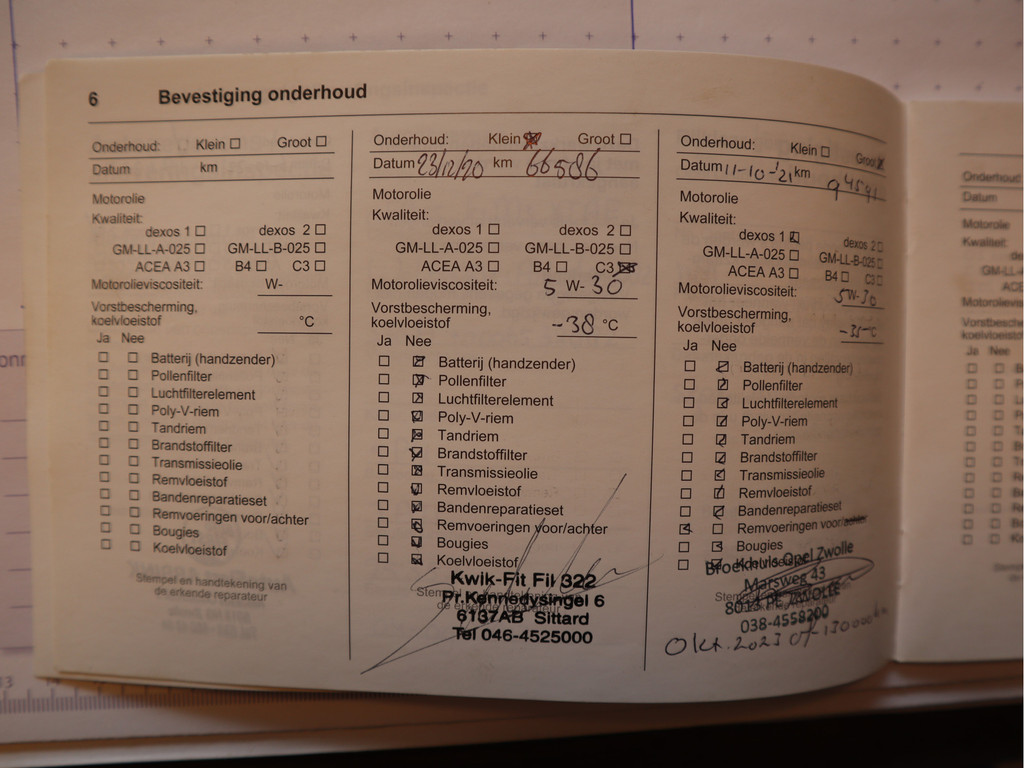 6 Bevestiging onderhoud
Onderhoud: Klein ☐ Groot ☐
Datum km
Motorolie
Kwaliteit:
dexos 1 ☐ dexos 2 ☐
GM-LL-A-025 ☐ GM-LL-B-025 ☐
ACEA A3 ☐ B4 ☐ C3 ☐
Motorolieviscositeit: W-
Vorstbescherming,
koelvloeistof °C
Ja Nee
☐ ☐ Batterij (handzender)
☐ ☐ Pollenfilter
☐ ☐ Luchtfilterelement
☐ ☐ Poly-V-riem
☐ ☐ Tandriem
☐ ☐ Brandstoffilter
☐ ☐ Transmissieolie
☐ ☐ Remvloeistof
☐ ☐ Bandenreparatieset
☐ ☐ Remvoeringen voor/achter
☐ ☐ Bougies
☐ ☐ Koelvloeistof
Stempel en handtekening van
de erkende reparateur
Onderhoud: Klein ☒ Groot ☐
Datum 23/12/20 km 66586
Motorolie
Kwaliteit:
dexos 1 ☐ dexos 2 ☐
GM-LL-A-025 ☐ GM-LL-B-025 ☐
ACEA A3 ☐ B4 ☐ C3 ☒
Motorolieviscositeit: 5 W- 30
Vorstbescherming,
koelvloeistof -38 °C
Ja Nee
☐ ☒ Batterij (handzender)
☐ ☒ Pollenfilter
☐ ☒ Luchtfilterelement
☐ ☒ Poly-V-riem
☐ ☒ Tandriem
☐ ☒ Brandstoffilter
☐ ☒ Transmissieolie
☐ ☒ Remvloeistof
☐ ☒ Bandenreparatieset
☐ ☒ Remvoeringen voor/achter
☐ ☒ Bougies
☐ ☒ Koelvloeistof
Kwik-Fit Fil 322
Pr.Kennedysingel 6
6137AB Sittard
Tel 046-4525000
Onderhoud: Klein ☐ Groot ☒
Datum 11-10-'21 km 94541
Motorolie
Kwaliteit:
dexos 1 ☒ dexos 2 ☐
GM-LL-A-025 ☐ GM-LL-B-025 ☐
ACEA A3 ☐ B4 ☐ C3 ☐
Motorolieviscositeit: 5W-30
Vorstbescherming,
koelvloeistof -35 °C
Ja Nee
☐ ☒ Batterij (handzender)
☐ ☒ Pollenfilter
☐ ☒ Luchtfilterelement
☐ ☒ Poly-V-riem
☐ ☒ Tandriem
☐ ☒ Brandstoffilter
☐ ☒ Transmissieolie
☐ ☒ Remvloeistof
☐ ☒ Bandenreparatieset
☒ ☐ Remvoeringen voor/achter
☐ ☒ Bougies
☐ ☒ Koelvloeistof
Broekhuis Opel Zwolle
Marsweg 43
8013 PE ZWOLLE
038-4558200
Okt. 2023
Onderhoud
Datum
Motorolie
Kwaliteit:
Ja Nee